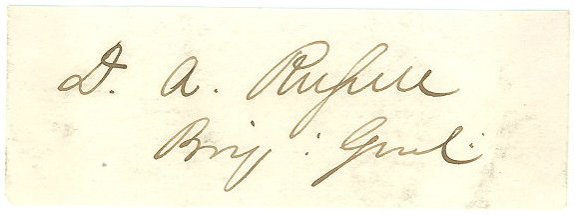 D. A. Russell
Brig: Genl: